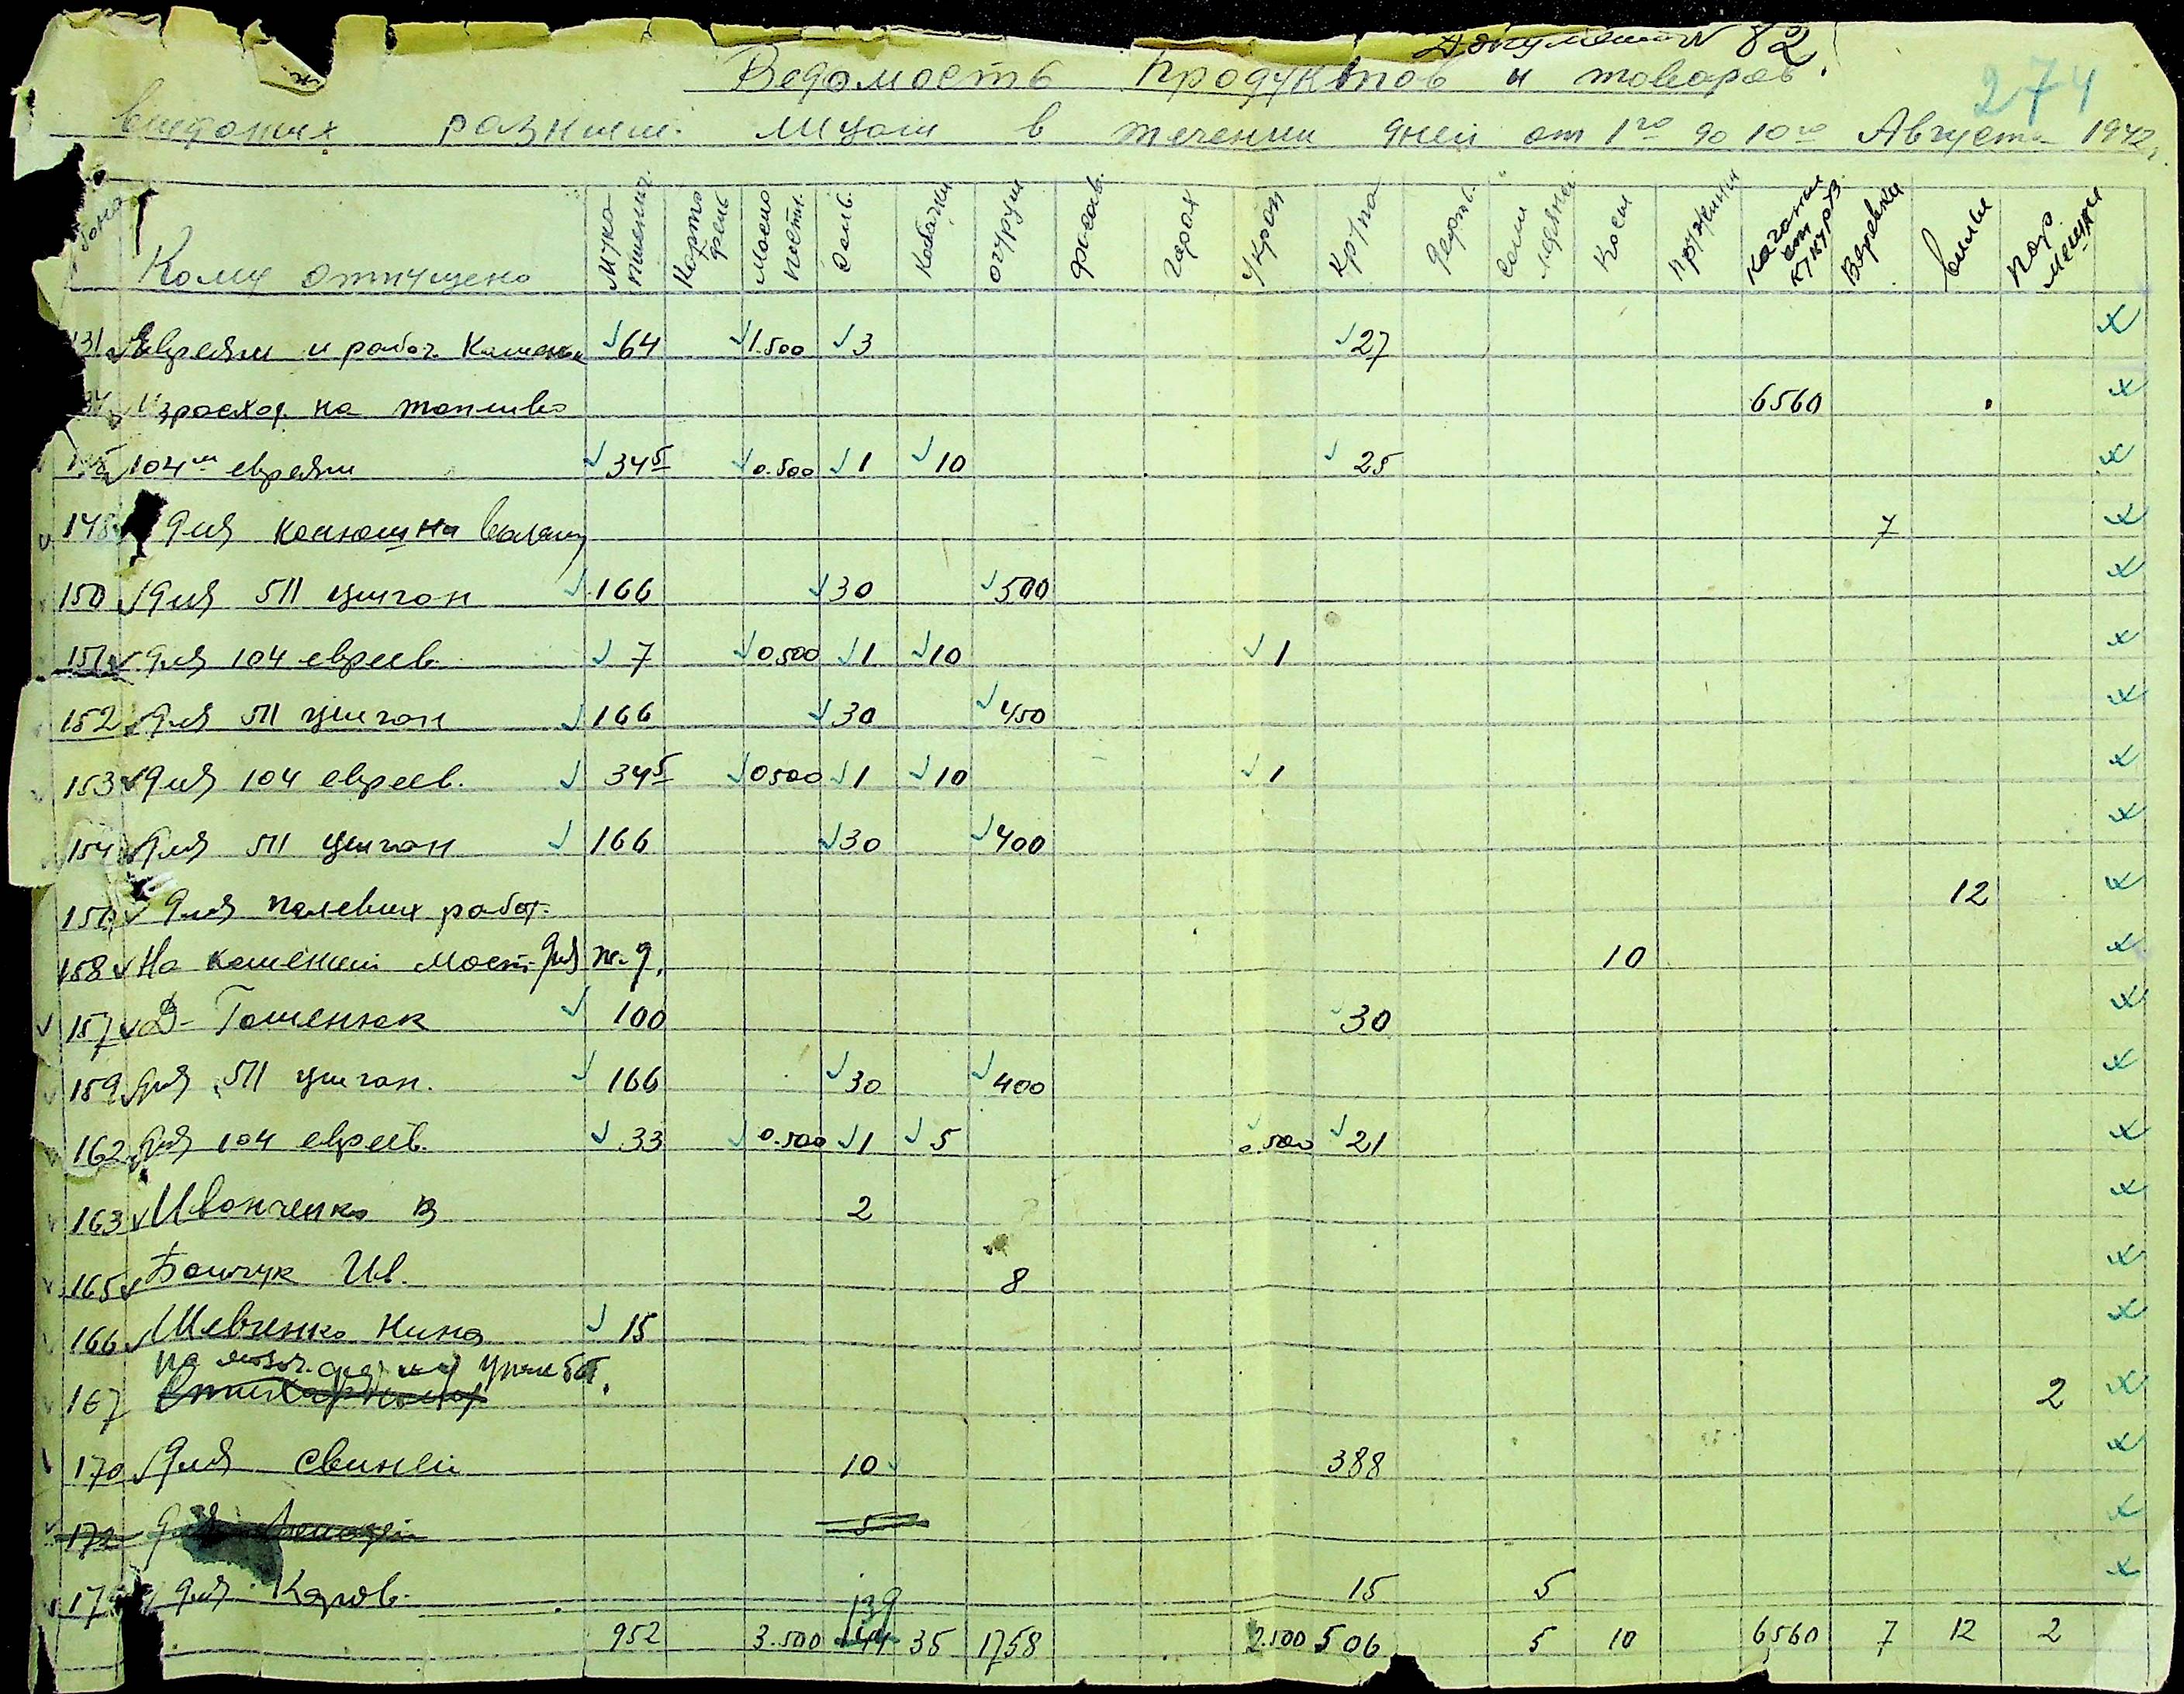 Документ N 82
274
Ведомость продуктов и товаров.
видоних разним лицам в течении дней от 1го до 10го Августа 1942 г.
бона Кому отпущено Мука пшенич. Карто фель Масло постн. Соль. Кабачки огурци фасоль. Горох Укроп Крупа Дерть. Соли Косы Пружини от кукуруз. Веревки вилы мешки
131 Евреям и рабоч. 64 1.500 3 27
Израсход. на топливо 6560
104м евреям 34 5 0.500 1 10 25
148 Для 7
150 Для 511 циган 166 30 500
151 Для 104 евреев. 7 0500 1 10 1
152 Для 511 циган 166 30 450
153 Для 104 евреев. 34 5 0500 1 10 1
154 Для 511 циган 166 30 400
156 Для палевих работ. 12
158 На каменний мост. для ж.д. 10
157 Д- Гошенюк 100 30
159 Для 511 циган. 166 30 400
162 Для 104 евреев. 33 0.500 1 5 0.500 21
163 Иванченко В 2
165 Ив. 8
166 Шевченко Нина 15
на
167 2
170 Для свиней 10 388
172 Для 5
17 Для Коров. 15 5
139
952 3.500 144 35 1758 2.500 506 5 10 6560 7 12 2